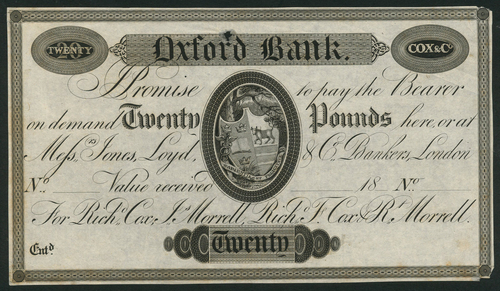 TWENTY 20 Oxford Bank. COX & Cº
I Promise to pay the Bearer
on demand Twenty Pounds here, or at
Messrs Jones, Loyd, & Cº Bankers, London
Nº Value received 18 Nº
For Richd Cox, Js Morrell, Richd F. Cox, Rt Morrell.
Entd Twenty